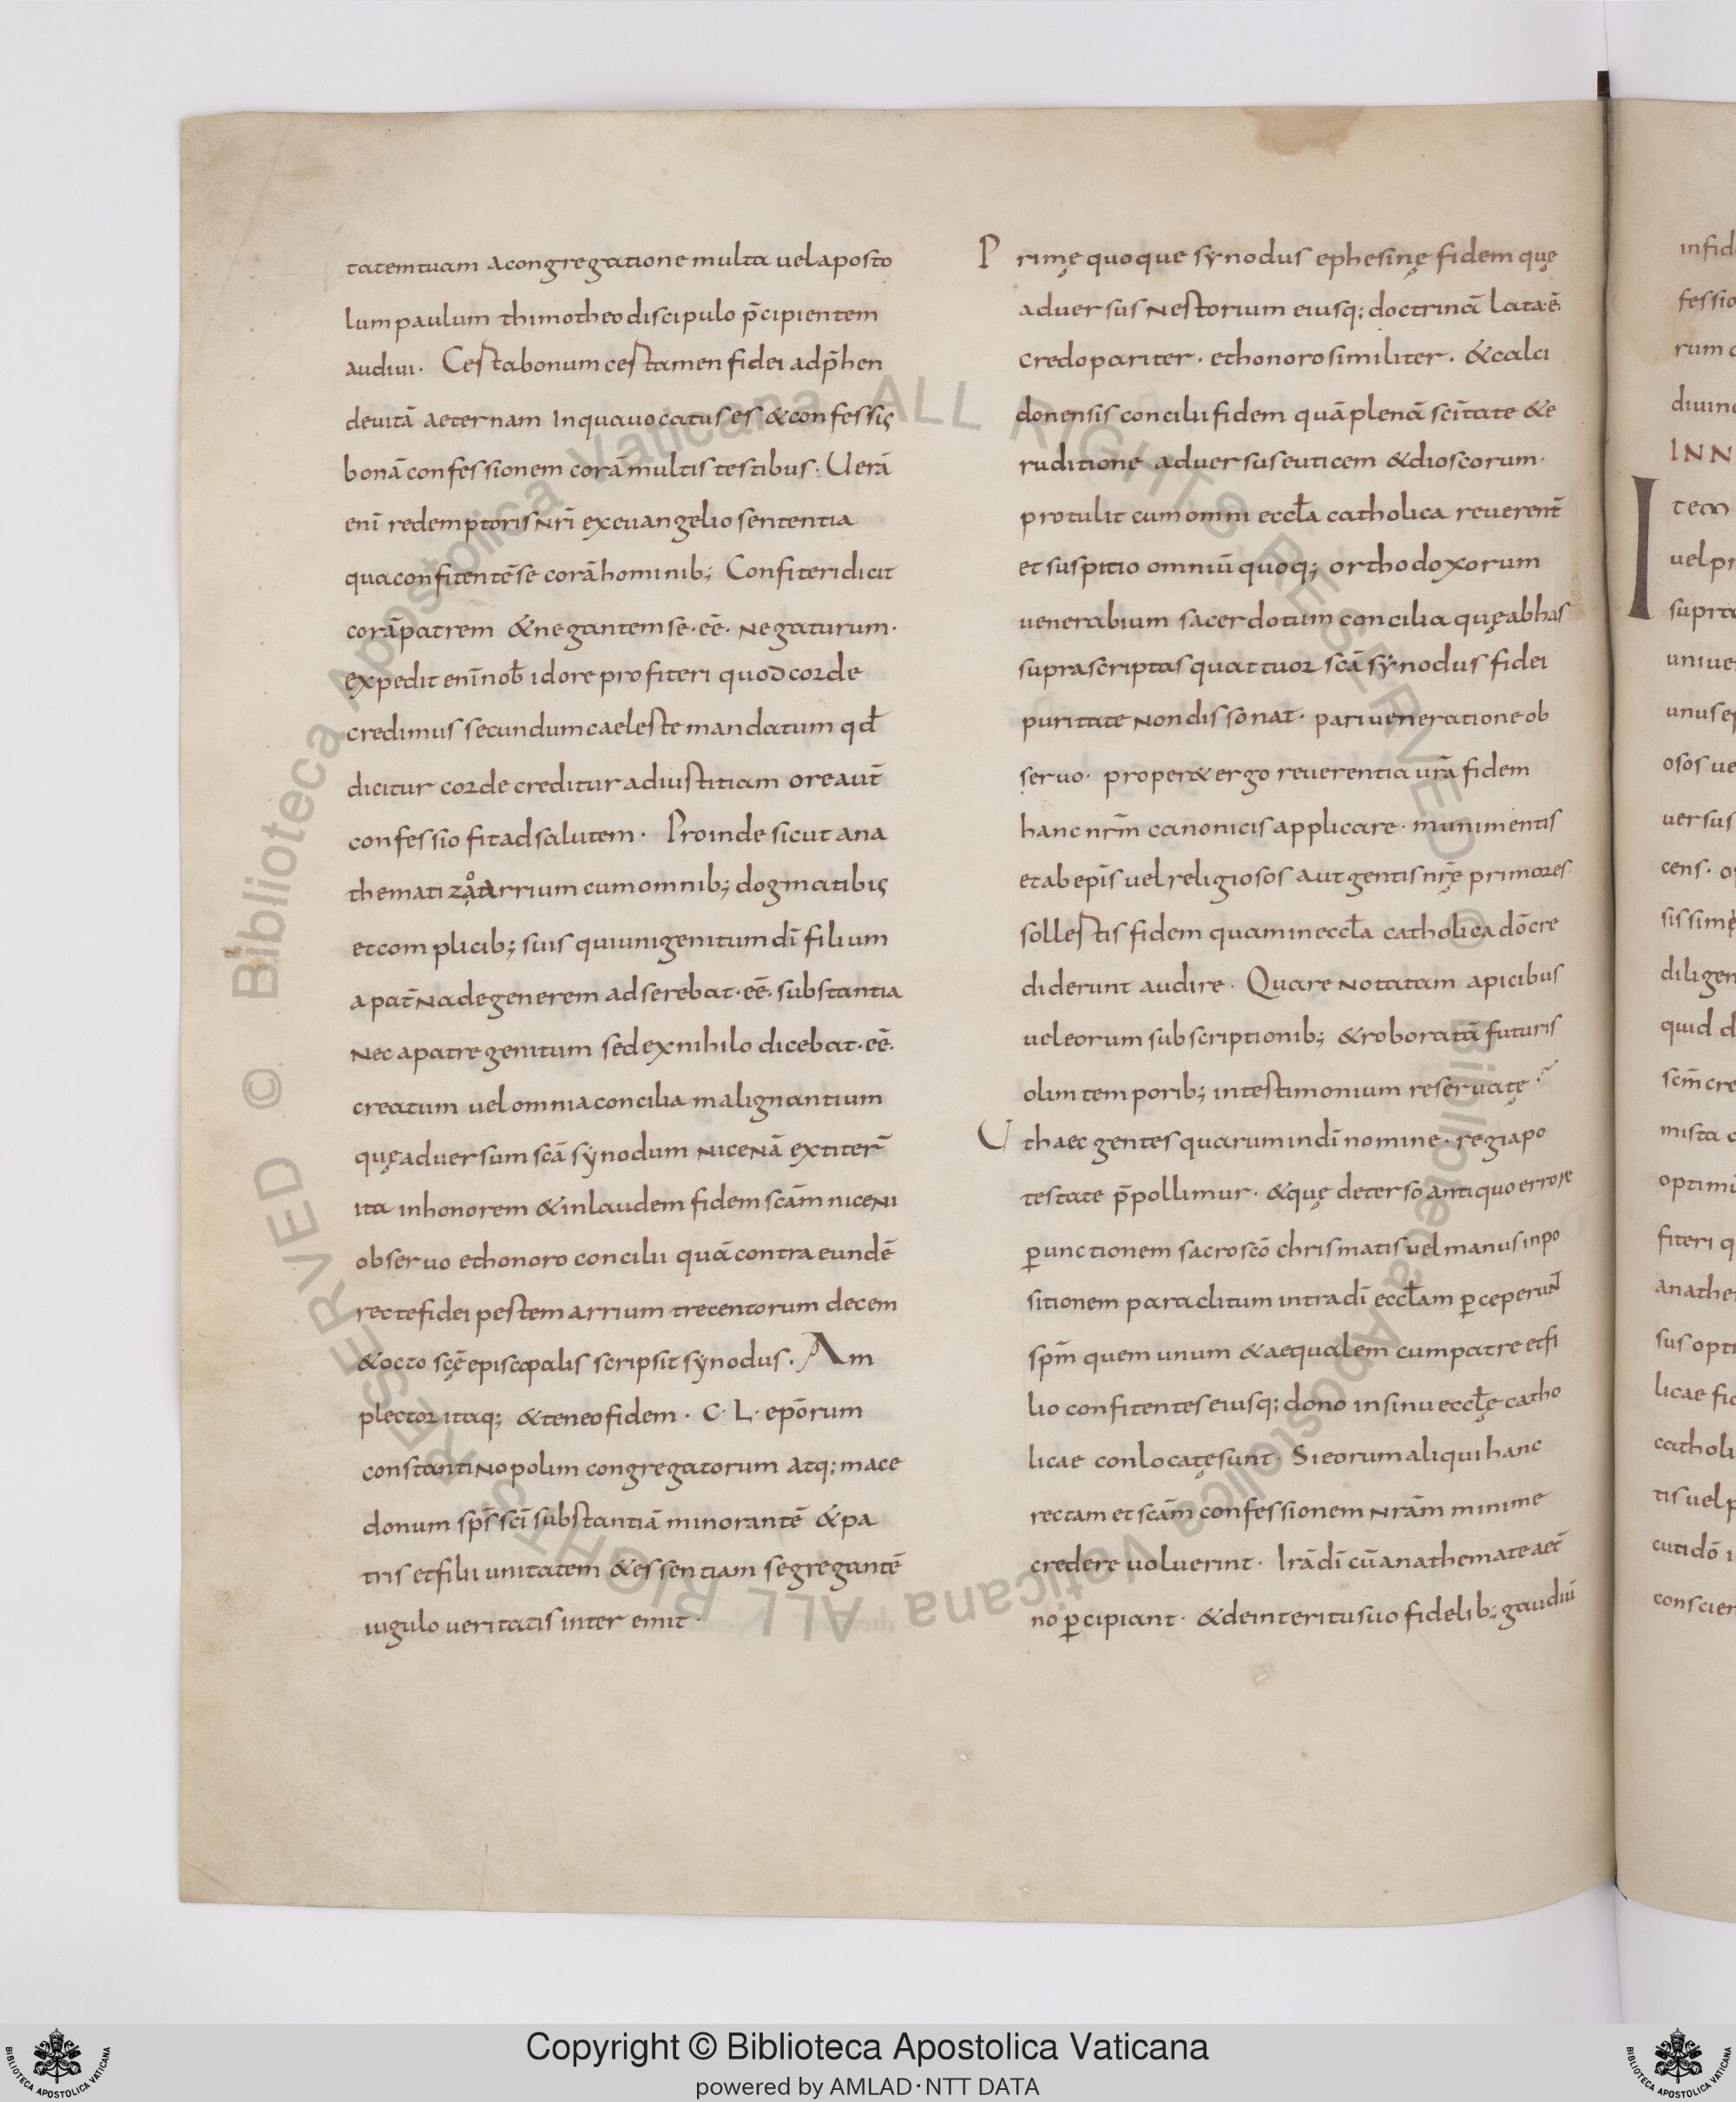 tatem tuam a congregatione multa vel aposto
lum paulum thimotheo discipulo p̄cipientem
audiui. Certa bonum certamen fidei adp̄hen
de uitā aeternam in qua uocatus es & confessus
bonā confessionem corā multis testibus. Uerā
enī redemptoris nr̄i ex euangelio sententia
qua confitentē se corā hominib; Confiteri dicit
corā patrem & negantem se·eē· negaturum·
expedit enī nob̄ id ore profiteri quod corde
credimus secundum caeleste mandatum qd̄
dicitur corde creditur ad iustitiam ore aut̄
confessio fit ad salutem· Proinde sicut ana
themati zat arrium cum omnib; dogmatibus
et complicib; suis qui unigenitum dī filium
a pat̄na degenerem adserebat·eē· substantia
nec a patre genitum sed ex nihilo dicebat·eē·
creatum uel omnia concilia malignantium
quę aduersum scā synodum nicenā extiter̄
ita in honorem & in laudem fidem scām niceni
obseruo et honoro concilii quā contra eundē
recte fidei pestem arrium trecentorum decem
& octo scę̄ episcopalis scripsit synodus· Am
plector itaq; & teneo fidem· C· L· epōrum
constantinopolim congregatorum atq; mace
donum sp̄s scī substantiā minorantē & pa
tris et filii unitatem & essentiam segregantē
iugulo ueritatis interemit·
Primę quoque synodus ephesinę fidem quę
aduersus nestorium eiusq; doctrinā lata·ē·
credo pariter· et honoro similiter· & calci
donensis concilii fidem quā plenā scītate & e
ruditione aduersus euticem & dioscorum·
protulit cum omni eccl̄a catholica reuerent̄
et suspitio omniū quoq; orthodoxorum
venerabium sacerdotum concilia quę ab has
suprascriptas quattuor scā synodus fidei
puritate non dissonat· pari ueneratione ob
seruo· proper& ergo reuerentia ur̄a fidem
hanc nrm̄ canonicis applicare· munimentis
et ab ep̄is uel religiosos aut gentis nr̄ę primores·
sollestis fidem quam in eccl̄a catholica dō cre
diderunt audire· Quare notatam apicibus
uel eorum subscriptionib; & roboratā futuris
olim temporib; in testimonium reseruatę·
Ut haec gentes quarum in dī nomine· regia po
testate p̄pollimur· & quę deterso antiquo errore
ꝑ unctionem sacroscō chrismatis uel manus inpo
sitionem paraclitum intra dī eccl̄am ꝑceperunt
sp̄m quem unum & aequalem cum patre et fi
lio confitentes eiusq; dono in sinu eccl̄ę catho
licae conlocatę sunt· Si eorum aliqui hanc
rectam et scām confessionem nrām minime
credere uoluerint· Irā dī cū anathemate aet̄
no ꝑcipiant· & de interitu suo fidelib; gaudiū
infid
fessio
rum
diuin
INN
Item
uel pr
supra
uniue
unus ep
osos ue
uersus
cens·
sissimę
diligen
quid d
scm̄ cre
mista
optimū
fiteri q
anathe
sus opt
licae fid
catholi
tis uel p
cuti dō
conscien
Copyright © Biblioteca Apostolica Vaticana
powered by AMLAD·NTT DATA